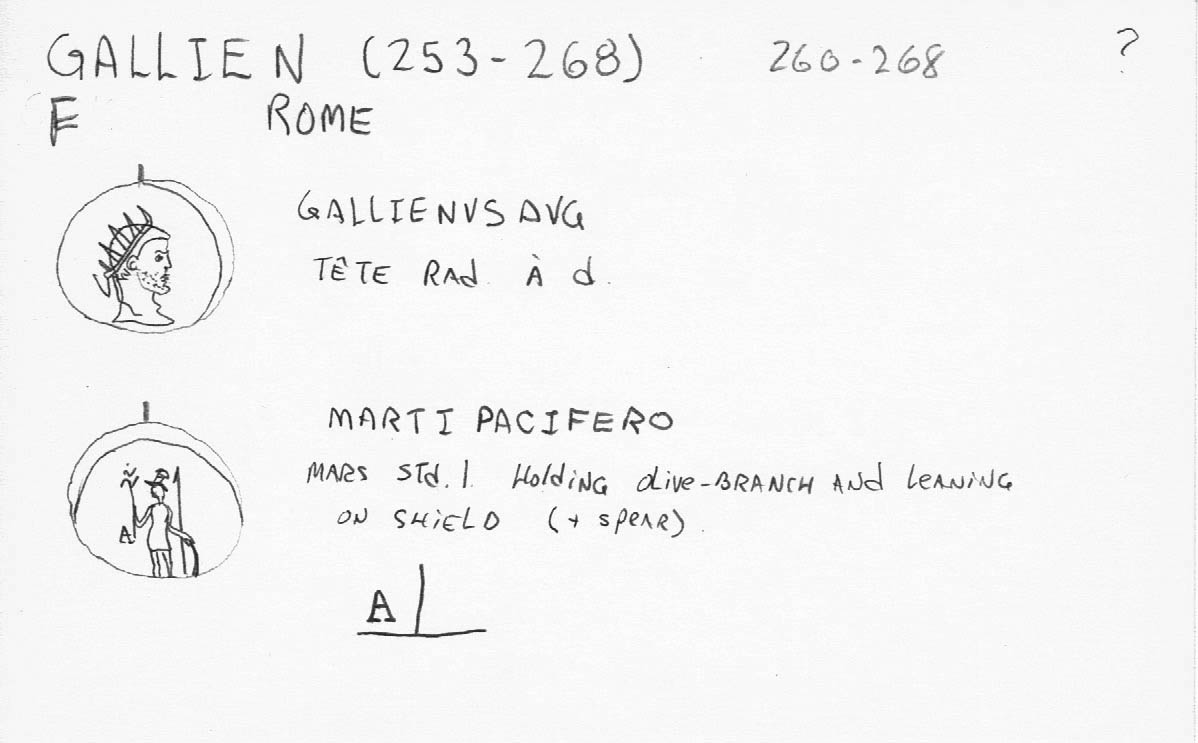 GALLIEN (253-268) 260-268 ?
F ROME
GALLIENVS AVG
TÊTE RAd. À d.
MARTI PACIFERO
MARS STd. l. HoldiNG oLive-BRANCH ANd LeANiNG
ON SHiELD (+ SPeAR).
A
A